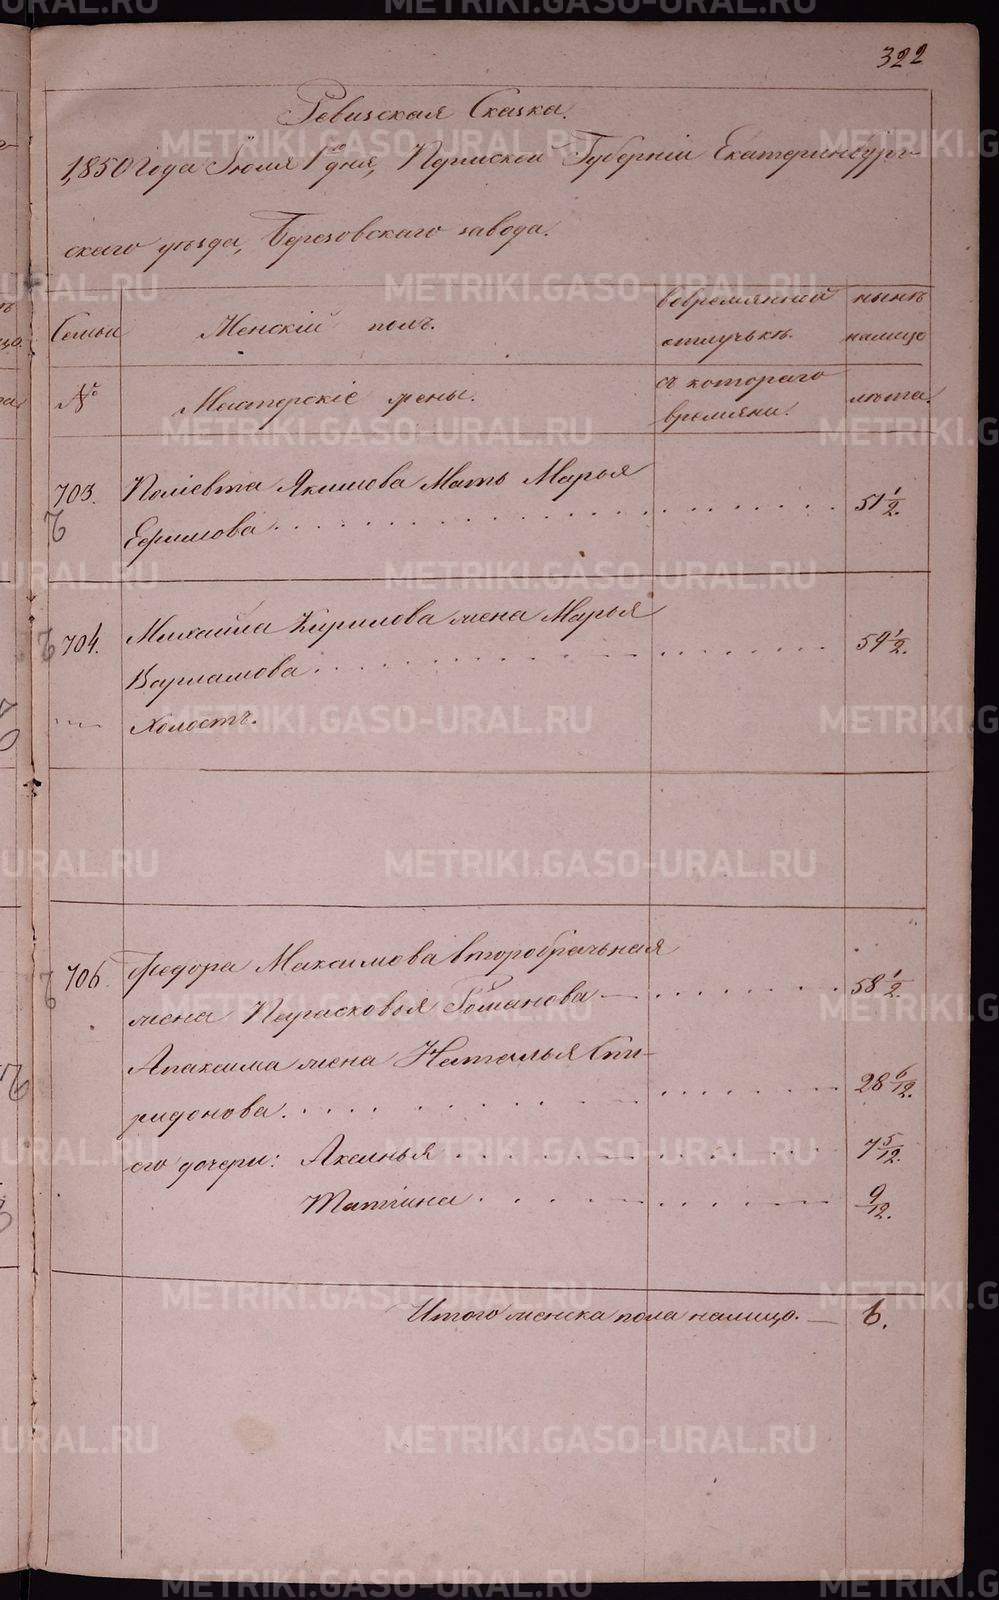 322
Ревизская Сказка.
1850 года Июля 1го дня, Пермской Губерніи Екатеринбург-
скаго уезда, Березовскаго завода.
Семьи
Женскій полъ.
вовремянной
отлучькѣ.
нынѣ
налицо
№
Мастерскіе жены.
съ котораго
времяни.
лѣта.
703. Поліевта Якимова Мать Марья
Ефимова 51 1/2.
704. Михаила Кирилова жена Марья
Варламова 59 1/2.
Холостъ.
706. Федора Максимова второбрачьная
жена Парасковья Романова 58 1/2.
Апаксима жена Наталья Спи-
ридонова. 28 6/12.
его дочери: Аксинья 7 5/12.
Татіана 9/12.
Итого женска пола налицо. 6.
METRIKI.GASO-URAL.RU